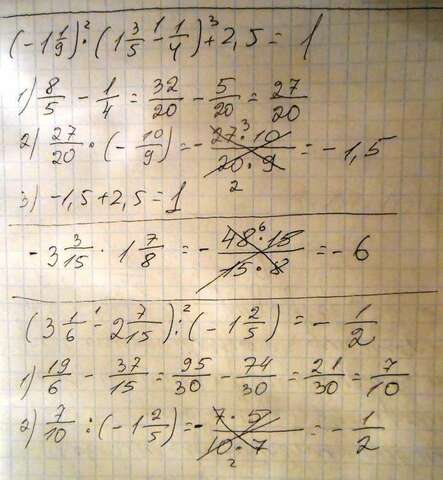 (-1 1/9) ·² (1 3/5 -¹ 1/4) +³ 2,5 = 1
1) 8/5 - 1/4 = 32/20 - 5/20 = 27/20
2) 27/20 · (- 10/9) = - 27 ³ · 10 / 20 · 9 2 = - 1,5
3) -1,5 + 2,5 = 1
- 3 3/15 · 1 7/8 = - 48 ⁶ · 15 / 15 · 8 = - 6
(3 1/6 -¹ 2 7/15) :² (-1 2/5) = - 1/2
1) 19/6 - 37/15 = 95/30 - 74/30 = 21/30 = 7/10
2) 7/10 : (-1 2/5) = - 7 · 5 / 10 · 7 2 = - 1/2